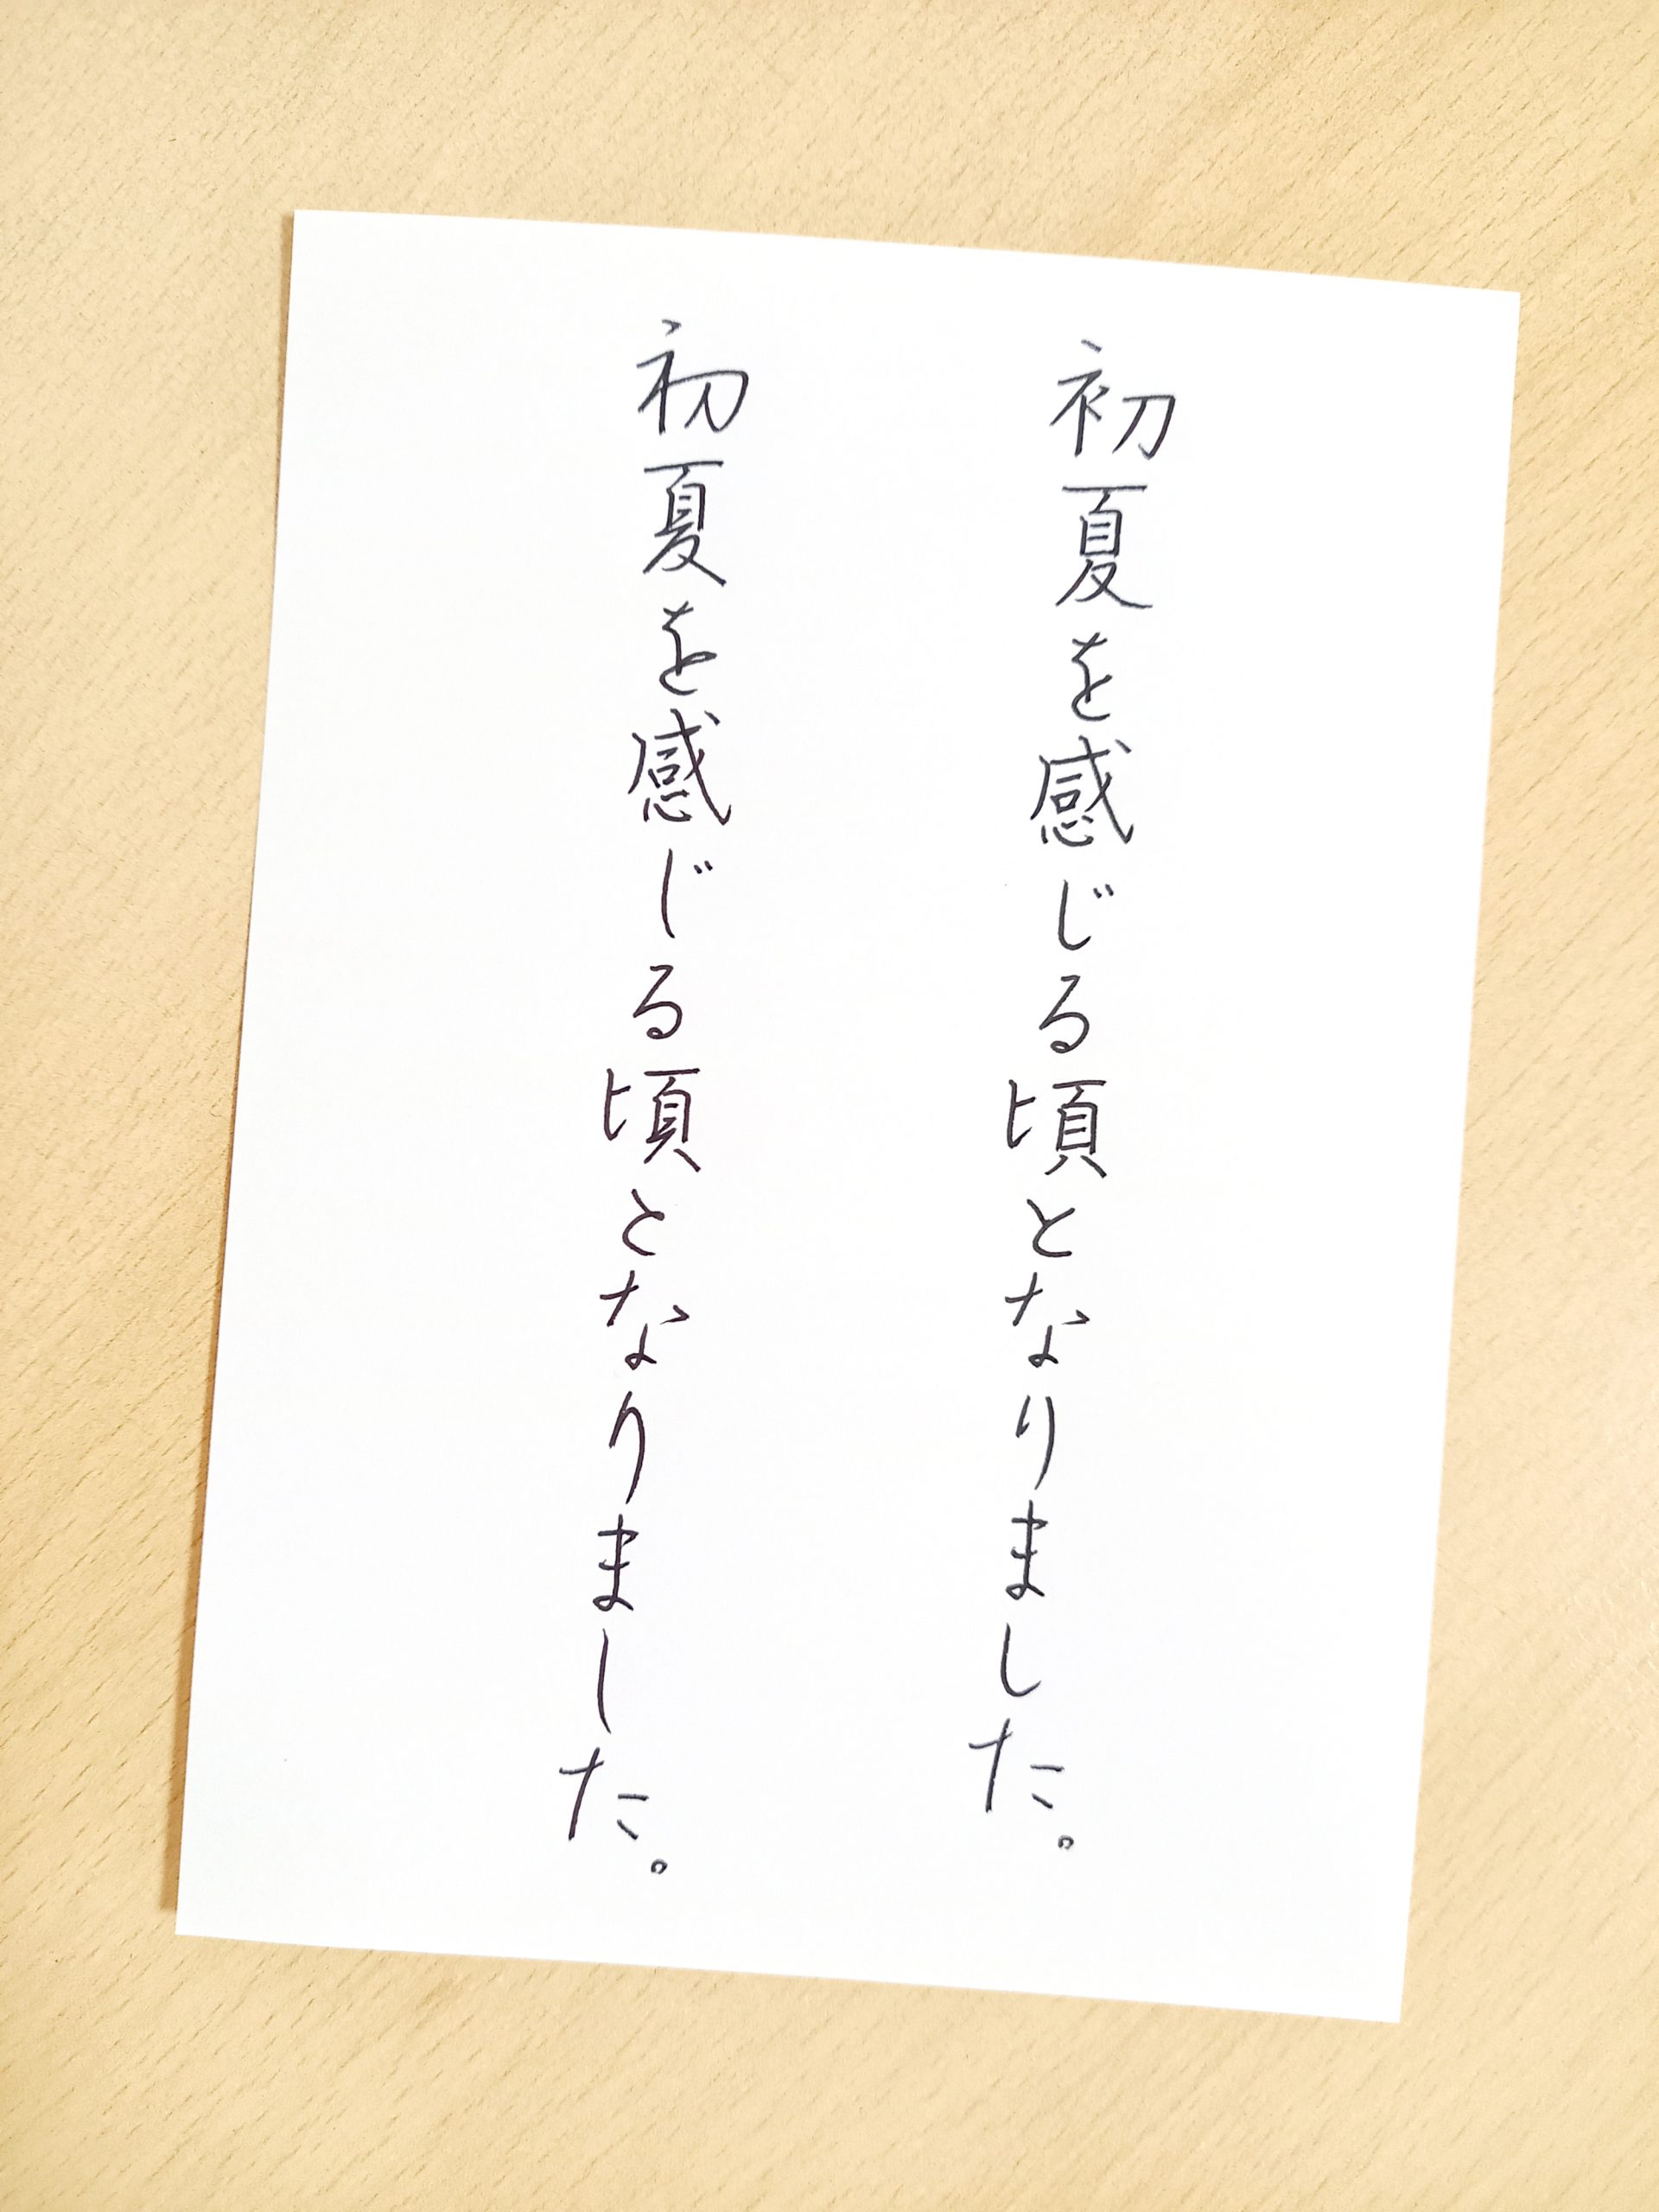 初夏を感じる頃となりました。
初夏を感じる頃となりました。